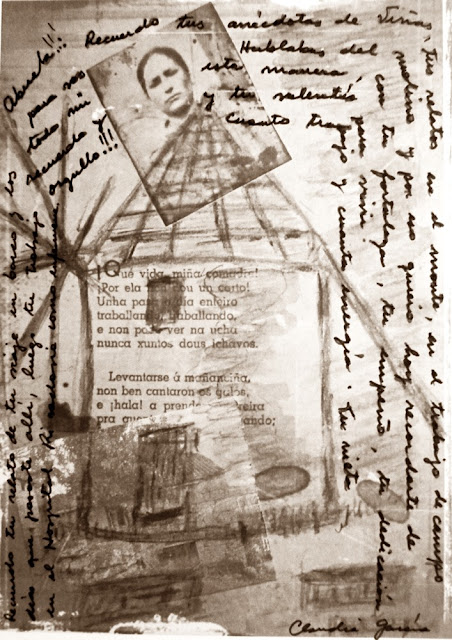 Abuela!!!
para vos
todo mi
recuerdo y
orgullo!!!
Recuerdo tus anécdotas de Viñas, tus relatos en el monte, en el trabajo de campo
Hablabas del molino y por eso quiero hoy recordarte de
esta manera, con tu fortaleza, tu empeño, tu dedicación
y tu valentía para vivir
Cuanto trabajo y cuanta energía. Tu nieta
Claudia García
¡Qué vida, miña comadre!
¡Por ela non dou un carto!
Unha pasa o día enteiro
traballando, traballando,
e non pode ver na ucha
nunca xuntos dous ichavos.
Levantarse á mañanciña,
non ben cantaron os galos,
e ¡hala! a prende
pra ando;
Recuerdo tu relato de tu viaje en barco, los
días que pasaste allí, luego tu trabajo
en el Hospital como